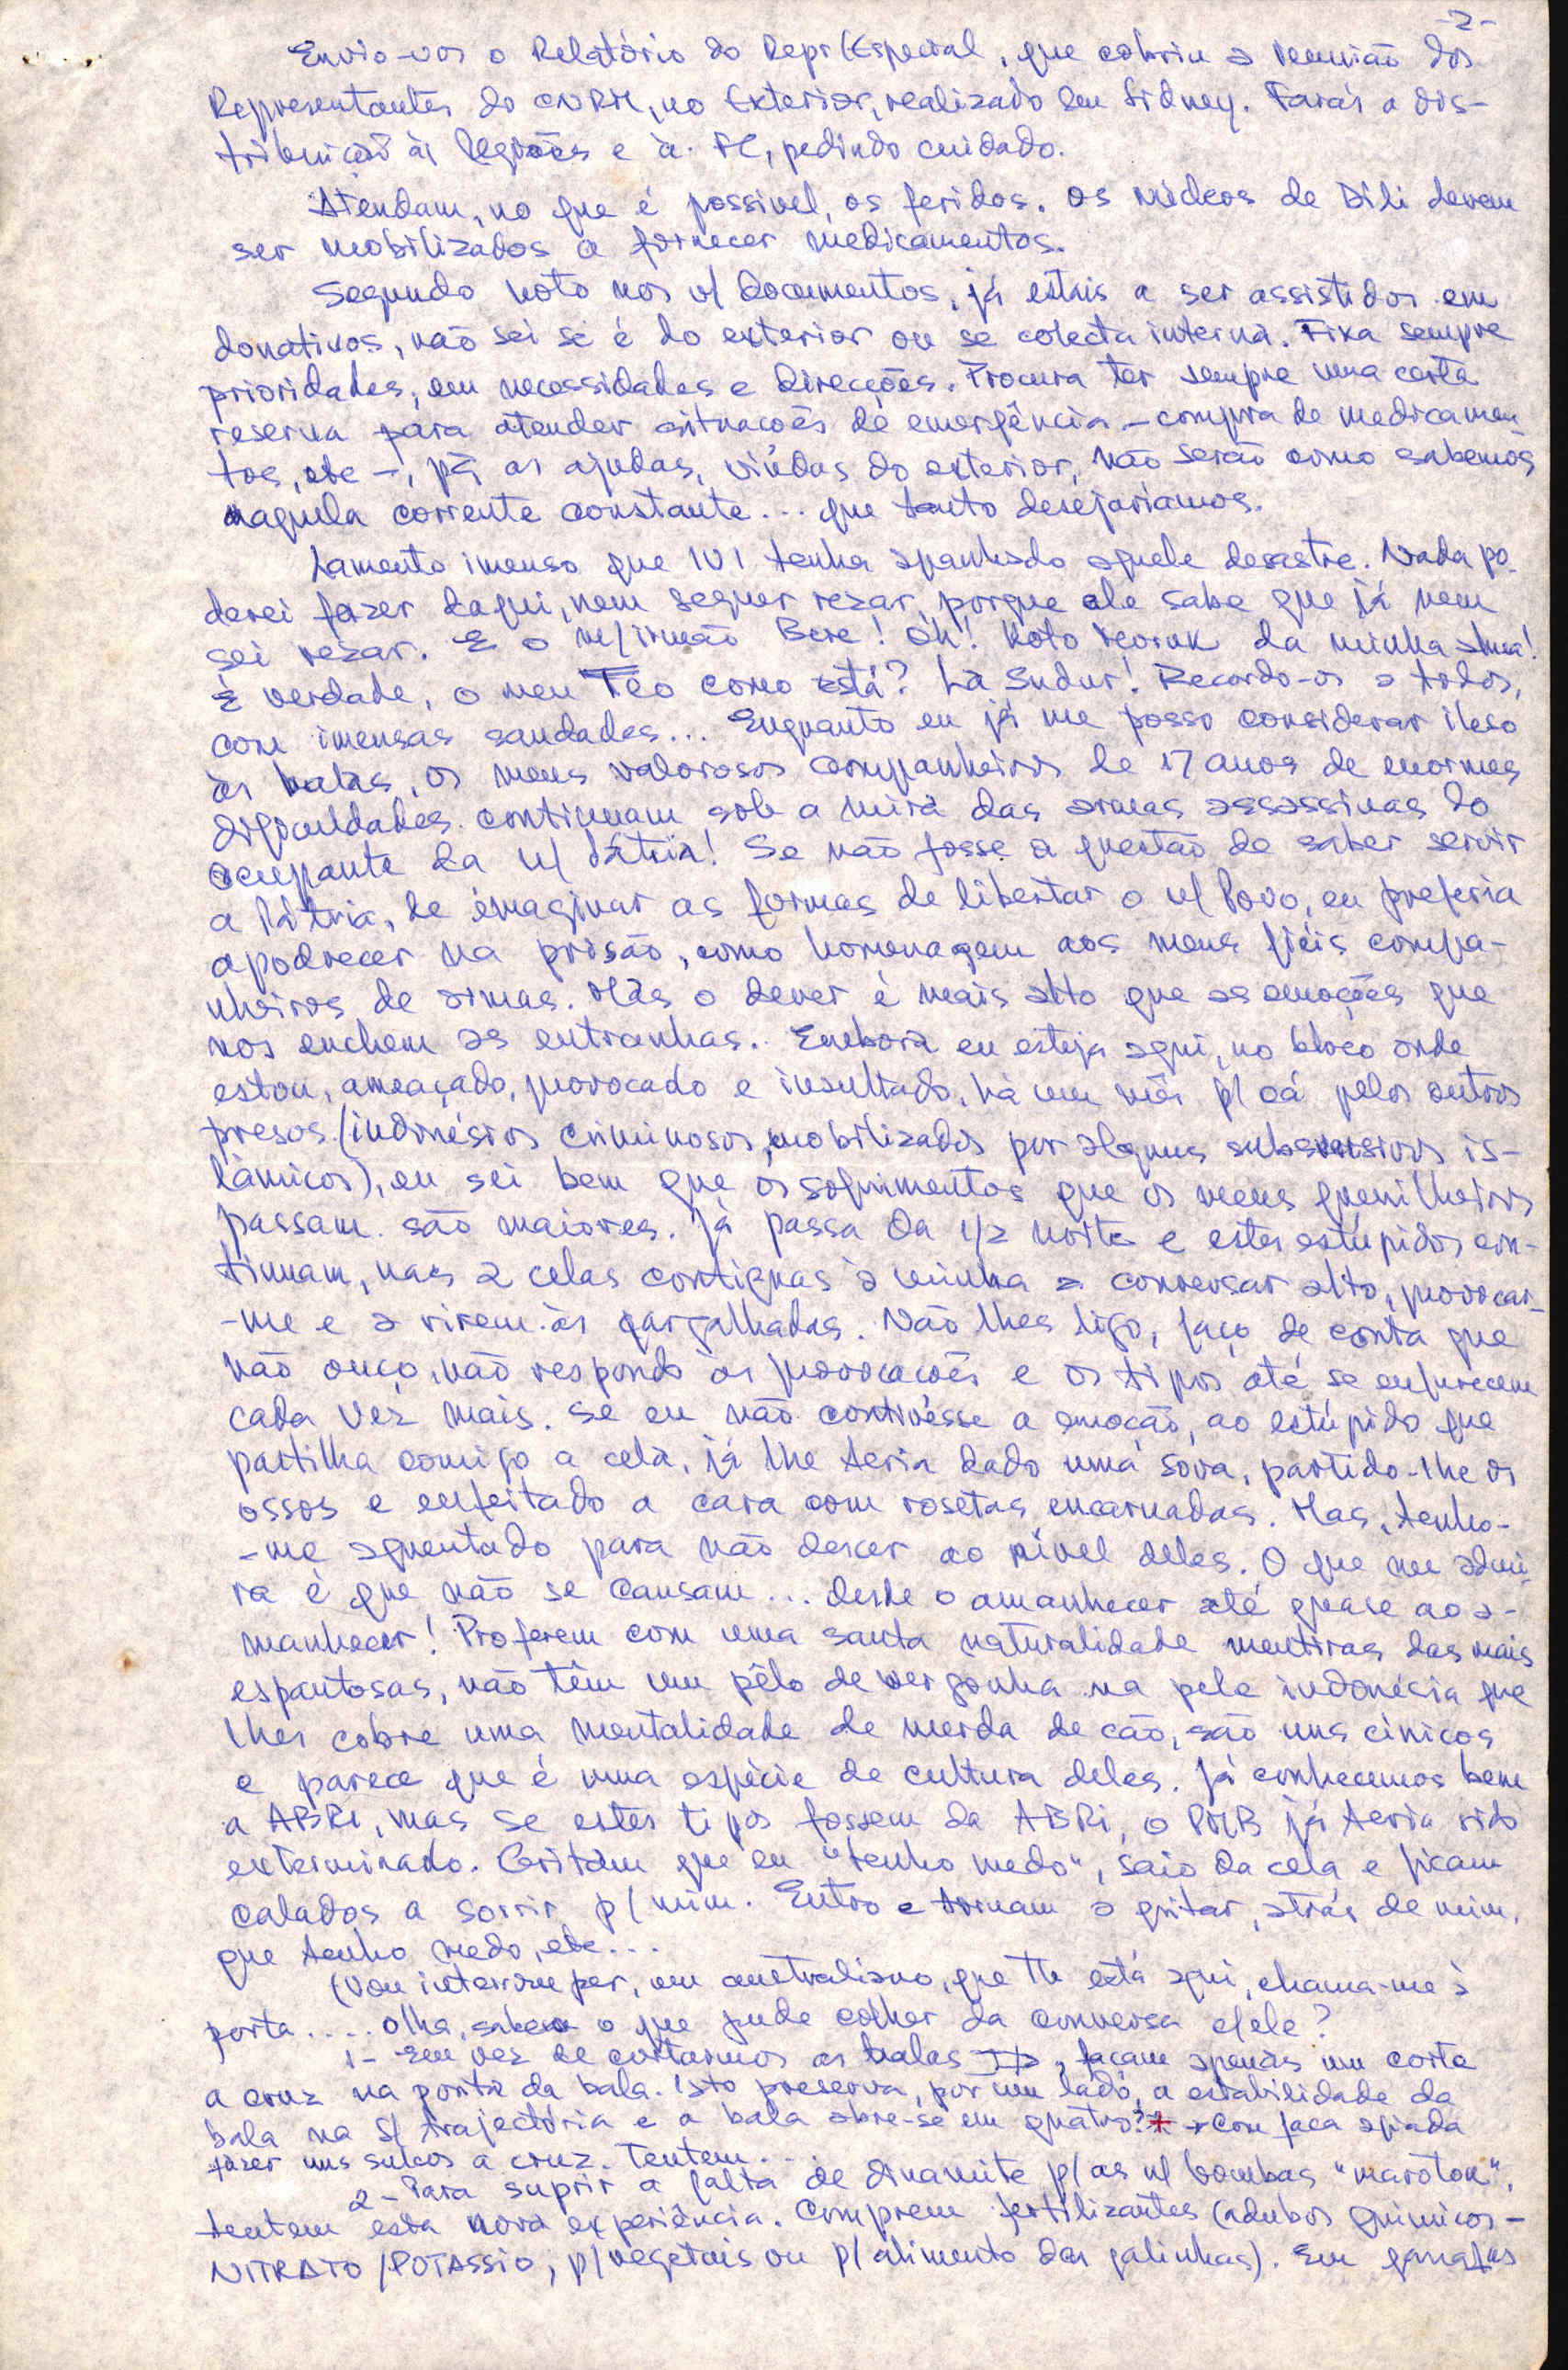 -2-
Envio-vos o Relatório do Repr/Especial, que cobriu a reunião dos
Representantes do CNRM, no Exterior, realizado em Sidney. Farás a dis-
tribuição às Regiões e à FC, pedindo cuidado.
Atendam, no que é possivel, os feridos. Os núcleos de Dili devem
ser mobilizados a fornecer medicamentos.
Segundo noto nos v/ documentos, já estais a ser assistidos em
donativos, não sei se é do exterior ou se colecta interna. Fixa sempre
prioridades, em necessidades e direcções. Procura ter sempre uma certa
reserva para atender situações de emergência - compra de medicamen-
tos, etc -, pq as ajudas, vindas do exterior, não serão como sabemos
naquela corrente constante... que tanto desejariamos.
Lamento imenso que tenha apanhado aquele desastre. Nada po-
derei fazer daqui, nem sequer rezar, porque ele sabe que já nem
sei rezar. E o n/irmão Bere! Oh! Koto da minha alma!
É verdade, o meu Teo como está? Lá Sudur! Recordo-os a todos,
com imensas saudades... Enquanto eu já me posso considerar ileso
às balas, os meus valorosos companheiros de 17 anos de enormes
dificuldades continuam sob a mira das armas assassinas do
ocupante da n/ Pátria! Se não fosse a questão de saber servir
a Pátria, de imaginar as formas de libertar o n/ Povo, eu preferia
apodrecer na prisão, como homenagem aos meus fiéis compa-
nheiros de armas. Mas o dever é mais alto que as emoções que
nos enchem as entranhas. Embora eu esteja aqui, no bloco onde
estou, ameaçado, provocado e insultado, há um mês p/ cá pelos outros
presos (indonésios criminosos, mobilizados por alguns subversivos is-
lâmicos), eu sei bem que os sofrimentos que os meus guerrilheiros
passam são maiores. Já passa da 1/2 noite e estes estúpidos con-
tinuam, nas 2 celas contiguas à minha a conversar alto, provocar-
-me e a rirem às gargalhadas. Não lhes ligo, faço de conta que
não ouço, não respondo às provocações e os tipos até se enfurecem
cada vez mais. Se eu não contivésse a emoção, ao estúpido que
partilha comigo a cela, já lhe teria dado uma sova, partido-lhe os
ossos e enfeitado a cara com rosetas encarnadas. Mas, tenho-
-me aguentado para não descer ao nível deles. O que me admi-
ra é que não se cansam... desde o amanhecer até quase ao a-
manhecer! Proferem com uma santa naturalidade mentiras das mais
espantosas, não têm um pêlo de vergonha na pele indonésia que
lhes cobre uma mentalidade de merda de cão, são uns cínicos
e parece que é uma espécie de cultura deles. Já conhecemos bem
a ABRI, mas se estes tipos fossem da ABRI, o PMB já teria sido
exterminado. Gritam que eu "tenho medo", saio da cela e ficam
calados a sorrir p/ mim. Entro e tornam a gritar, atrás de mim,
que tenho medo, etc...
(Vou interromper, um australiano, que tb está aqui, chama-me à
porta.... Olha, sabem o que pude colher da conversa c/ele?
1- Em vez de cortarmos as balas , façam apenas um corte
a cruz na ponta da bala. Isto preserva, por um lado, a estabilidade da
bala na s/ trajectória e a bala abre-se em quatro? * → Com faca afiada
fazer uns sulcos a cruz. Tentem...
2- Para suprir a falta de dinamite p/ as n/ bombas "maroton",
tentem esta nova experiência. Comprem fertilizantes (adubos quimicos -
NITRATO /POTASSIO, p/ vegetais ou p/ alimento das galinhas). Em garrafas